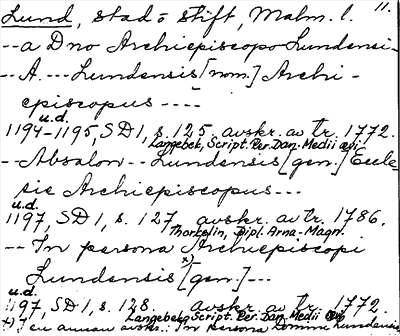 Lund, stad o stift, Malm. l. 11.
--a Dno Archiepiscopo Lundensi-
--A.---Lundensis [nom.] Archi-
episcopus ----
u.d.
1194-1195, SD 1, s. 125. avskr. av tr. 1772.
Langebek, Script. Rer. Dan. Medii ævi.
--Absalon--Lundensis [gen.] Eccle-
sie Archiepiscopus---
u.d.
1197, SD 1, s. 127, avskr. av tr. 1786.
Thorkelin, Dipl. Arna-Magn.
--In persona Archiepiscopi
Lundensis x) [gen.]---
u.d.
1197, SD 1, s. 128. avskr. av tr. 1772.
Langebek, Script. Rer. Dan. Medii ævi
x) I en annan avskr.: In persona Domini Lundensis